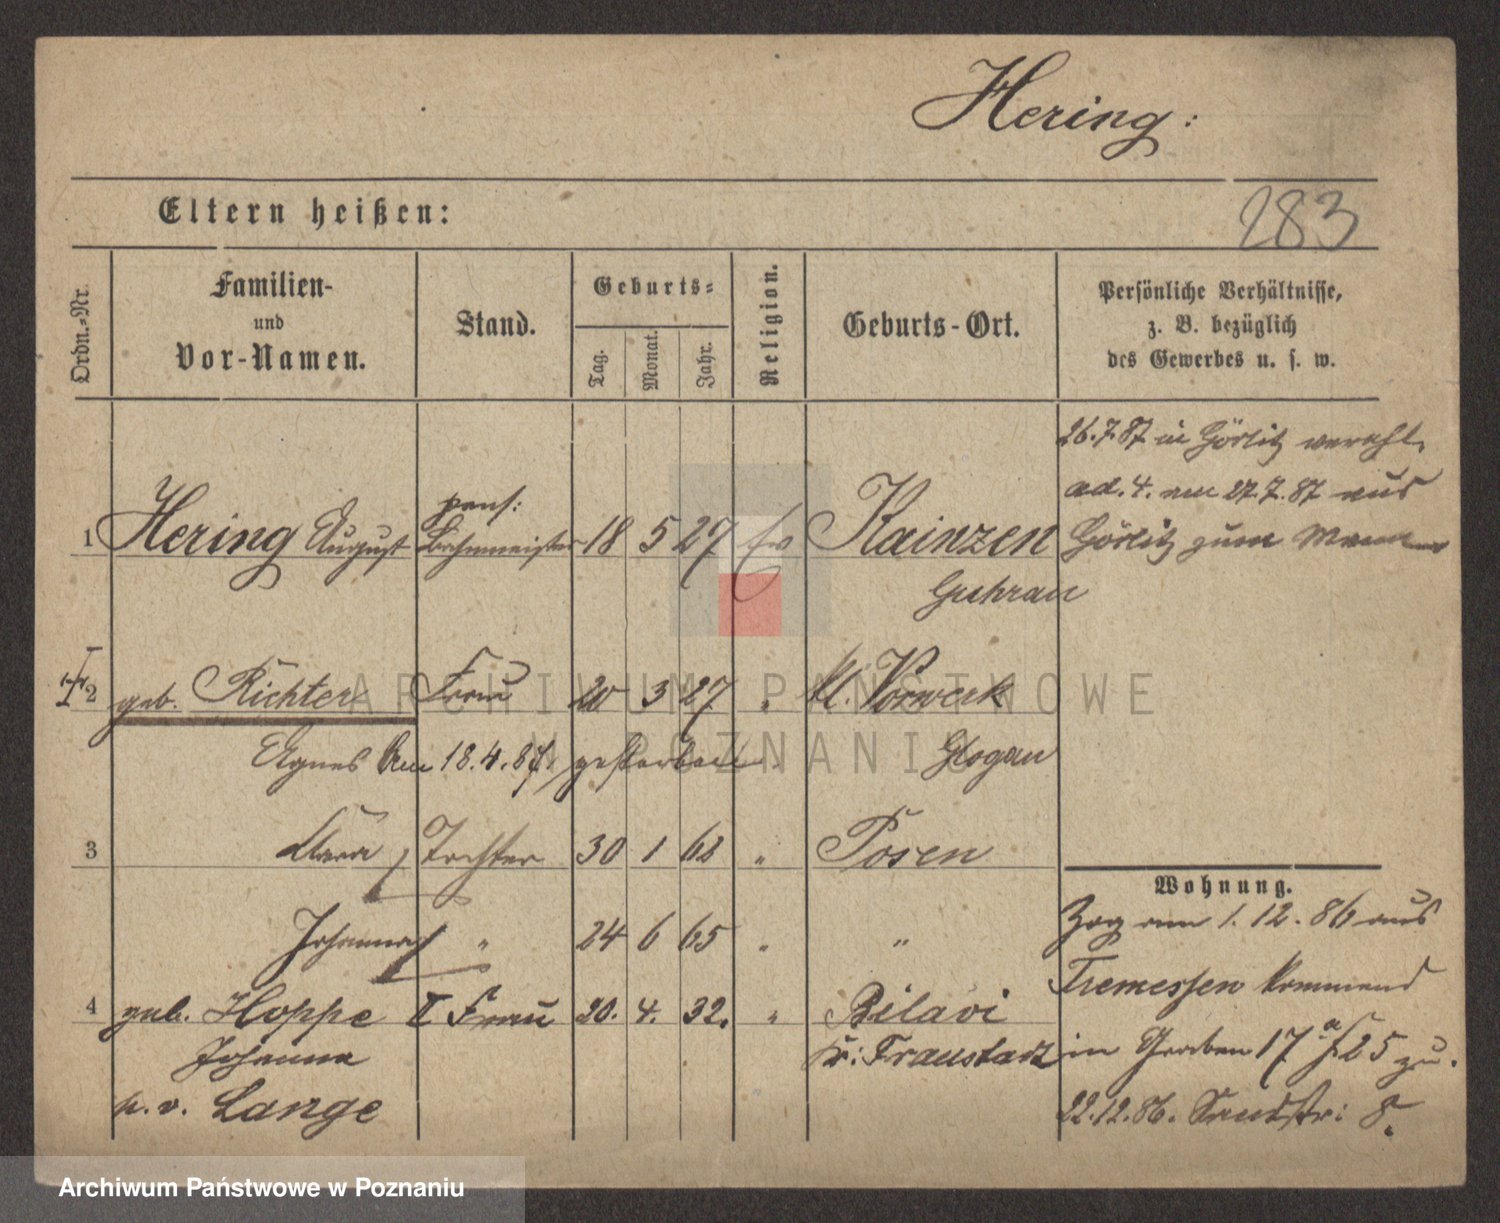 Hering:
Eltern heißen:
283
Ordn.-Nr.
Familien-
und
Vor-Namen.
Stand.
Geburts-
Tag.
Monat.
Jahr.
Religion.
Geburts-Ort.
Persönliche Verhältnisse,
z. B. bezüglich
des Gewerbes u. s. w.
26.7.87 in Görlitz verehl.
ad. 4. am 27.7.87 aus
Görlitz zum Manne
pens:
1 Hering August Bahnmeister 18 5 27 Ev Kainzen
Guhrau
2 geb. Richter Frau 20 3 27 " Kl. Vorwerk
Agnes Am 18.4.87. gestorben. Glogau
3 Clara Tochter 30 1 62 " Posen
Johanna " 24 6 65 " "
4 geb. Hoppe II Frau 20. 4. 32. " Bilawi
Johanna Kr: Fraustadt
v. Lange
Wohnung.
Zog am 1.12.86 aus
Tremessen kommend
in Graben 17a/25 zu.
22.12.86. Sandstr: 8.
ARCHIWUM PAŃSTWOWE
W POZNANIU
Archiwum Państwowe w Poznaniu